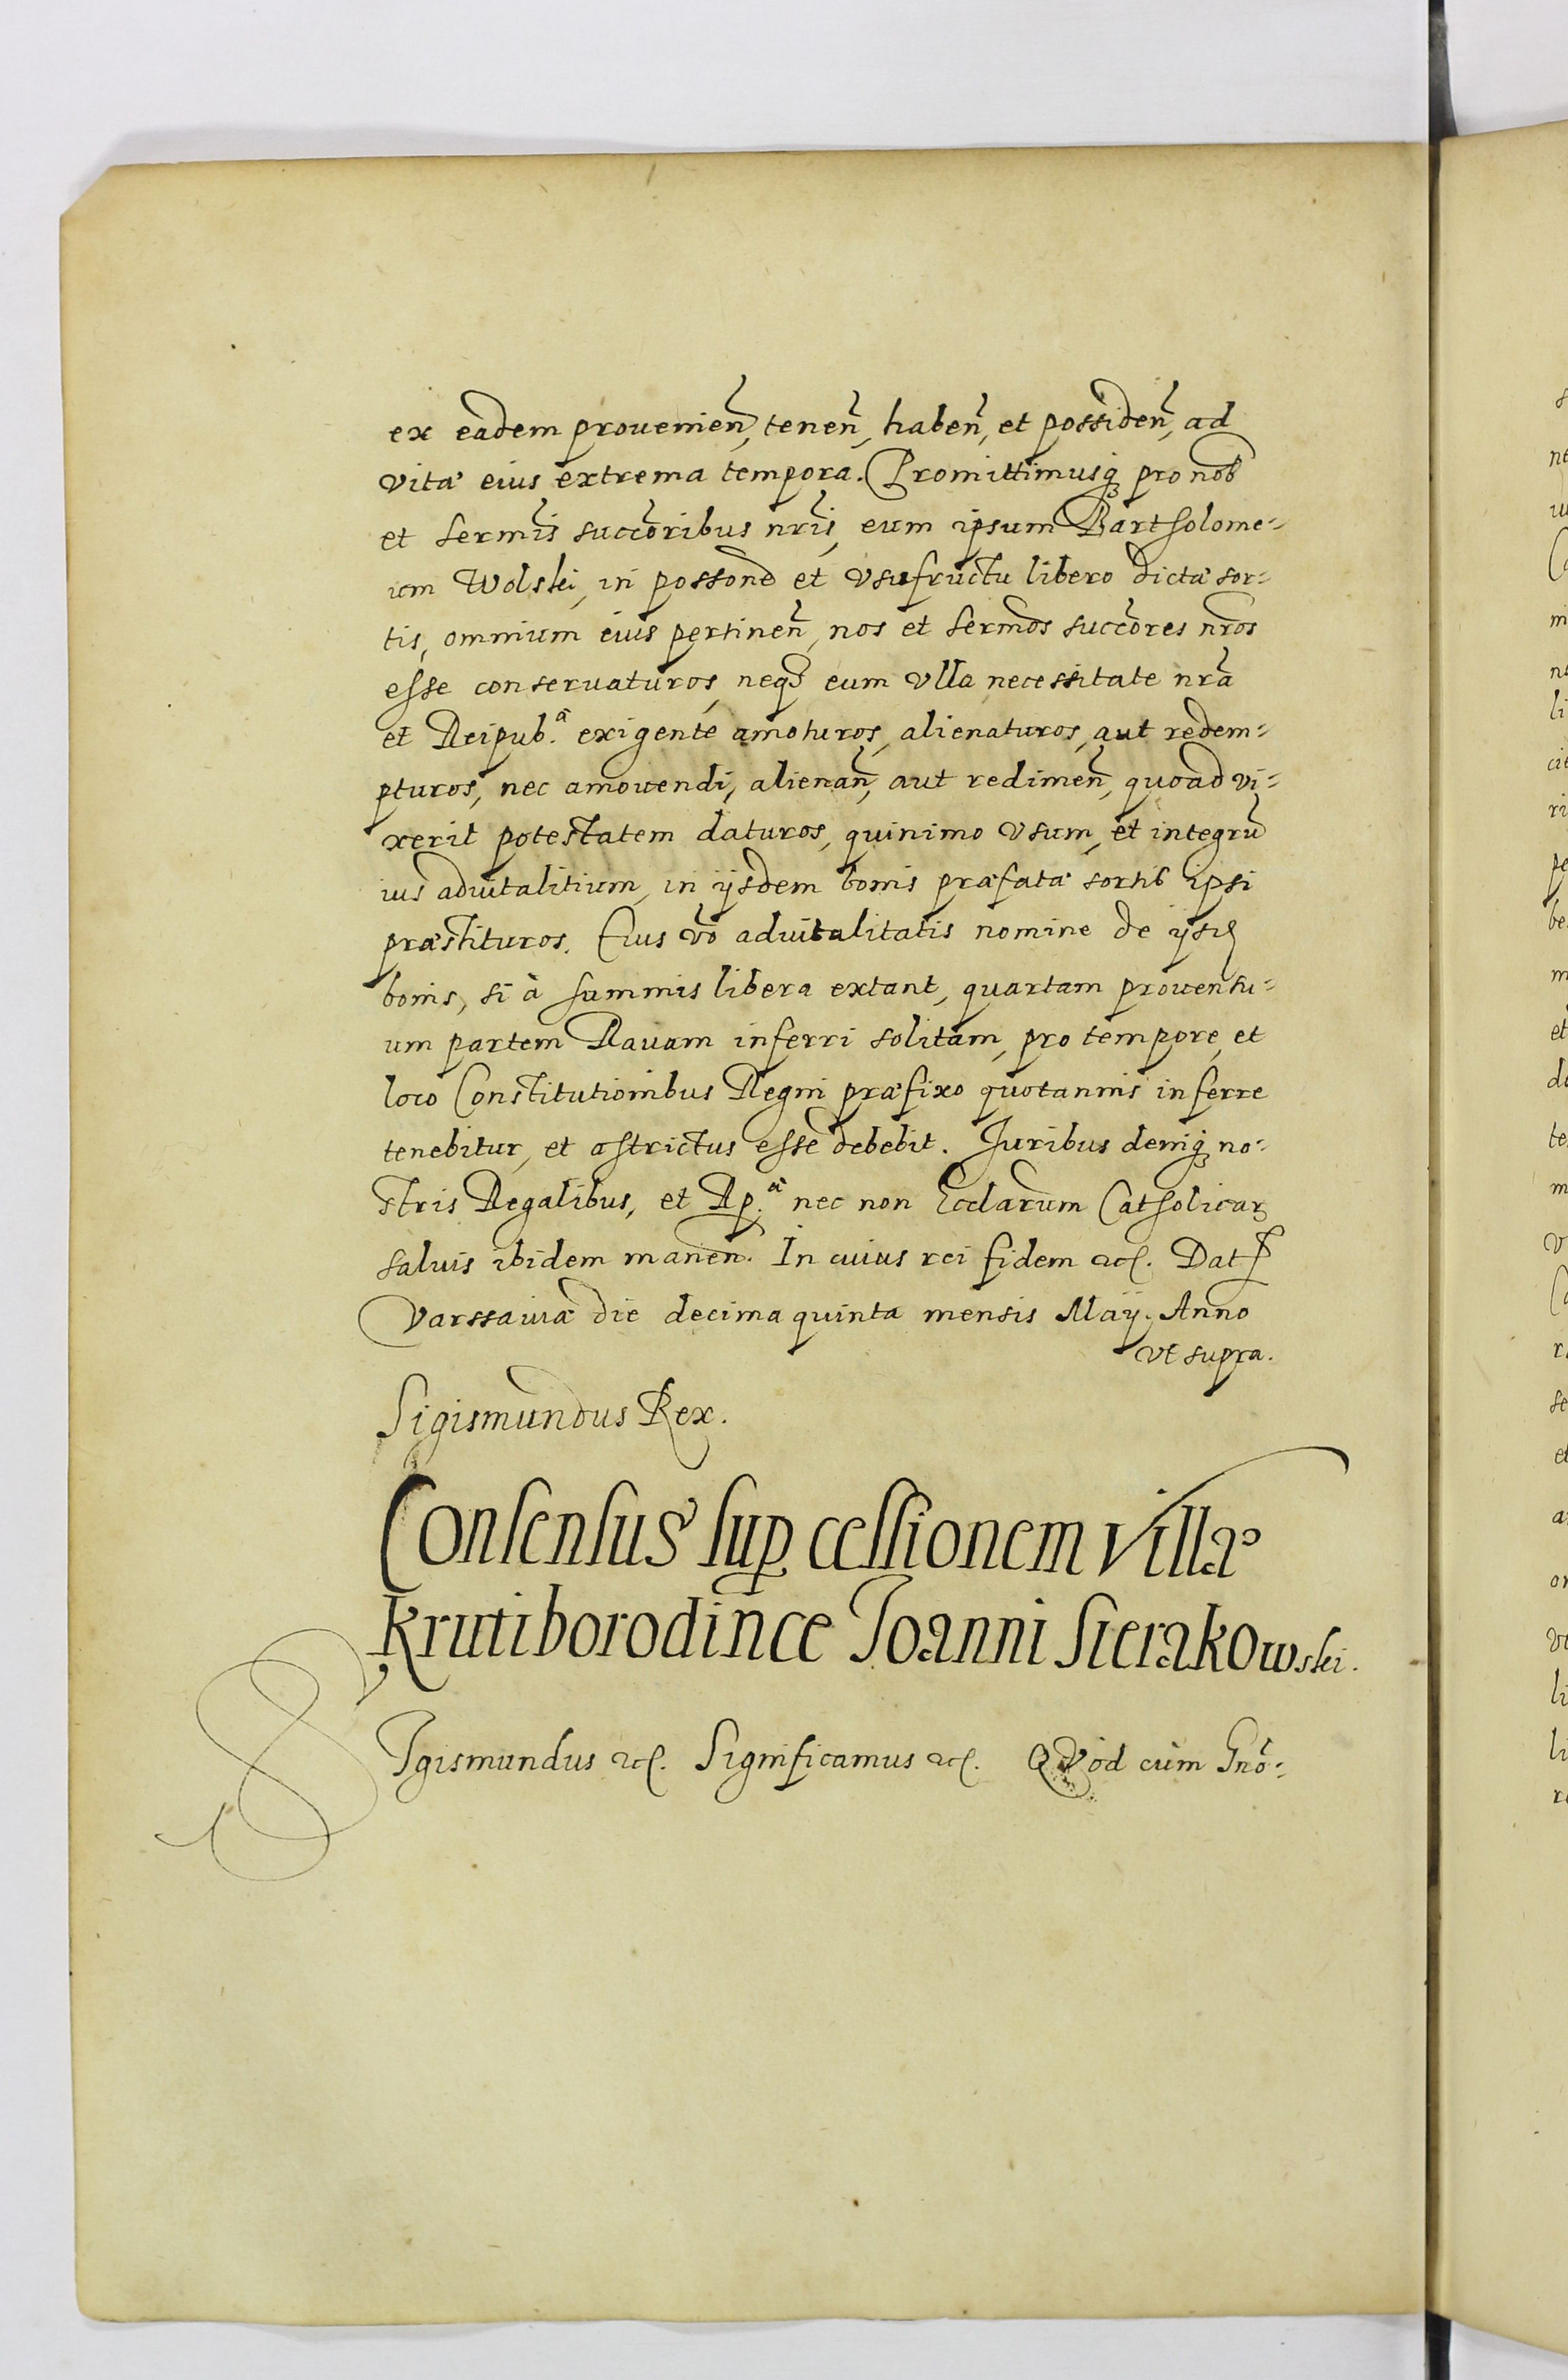 ex eadem prouenien̄, tenen̄, haben̄, et possiden̄, ad
vitæ eius extrema tempora. Promittimusq́ꝫ pro nob
et sermīs succōribus nr̄is, eum ipsum Bartholome=
um Wolski, in posson̄e et vsufructu libero dictæ sor=
tis, omnium eius pertinen̄, nos et sermōs succōres nr̄os
esse conseruaturos, neqꝫ eum vlla necessitate nr̄a
et Reipub.æ exigente amoturos, alienaturos, aut redem=
pturos, nec amouendi, alienan̄, aut redimen̄, quoad vi=
xerit potestatem daturos, quinimo vsum, et integrū
ius aduitalitium, in ijsdem bonis præfatæ sortis ipsi
præstituros. Eius vō aduitalitatis nomine de ijsd
bonis, si à summis libera extant, quartam prouentu=
um partem Rauam inferri solitam, pro tempore, et
loco Constitutionibus Regni præfixo quotannis inferre
tenebitur, et astrictus esse debebit. Juribus deniqꝫ no=
stris Regalibus, et Rp.æ nec non Ecclarum Catholicarꝫ
saluis ibidem manen̄. In cuius rei fidem etc. Dat
Varssauiæ die decima quinta mensis Maij. Anno
vt supra.
Sigismundus Rex.
Consensus sup cessionem villæ
Krutiborodince Joanni Sierakowski.
SIgismundus etc. Significamus etc. QVod cùm Gnō=